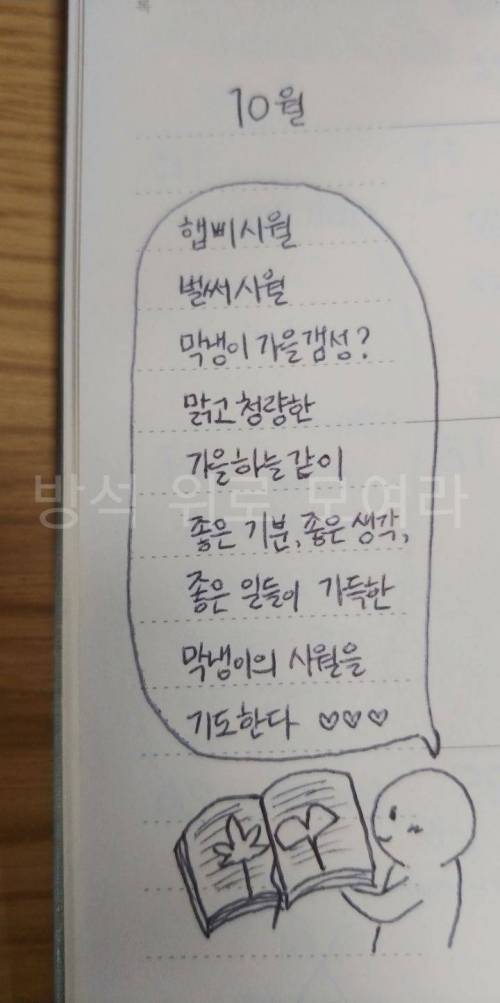 10월
햅삐시월
벌써시월
막냉이 가을갬성?
맑고청량한
가을하늘같이
방석 위로 모여라
좋은 기분, 좋은 생각,
좋은 일들이 가득한
막냉이의 시월을
기도한다 ♡♡♡